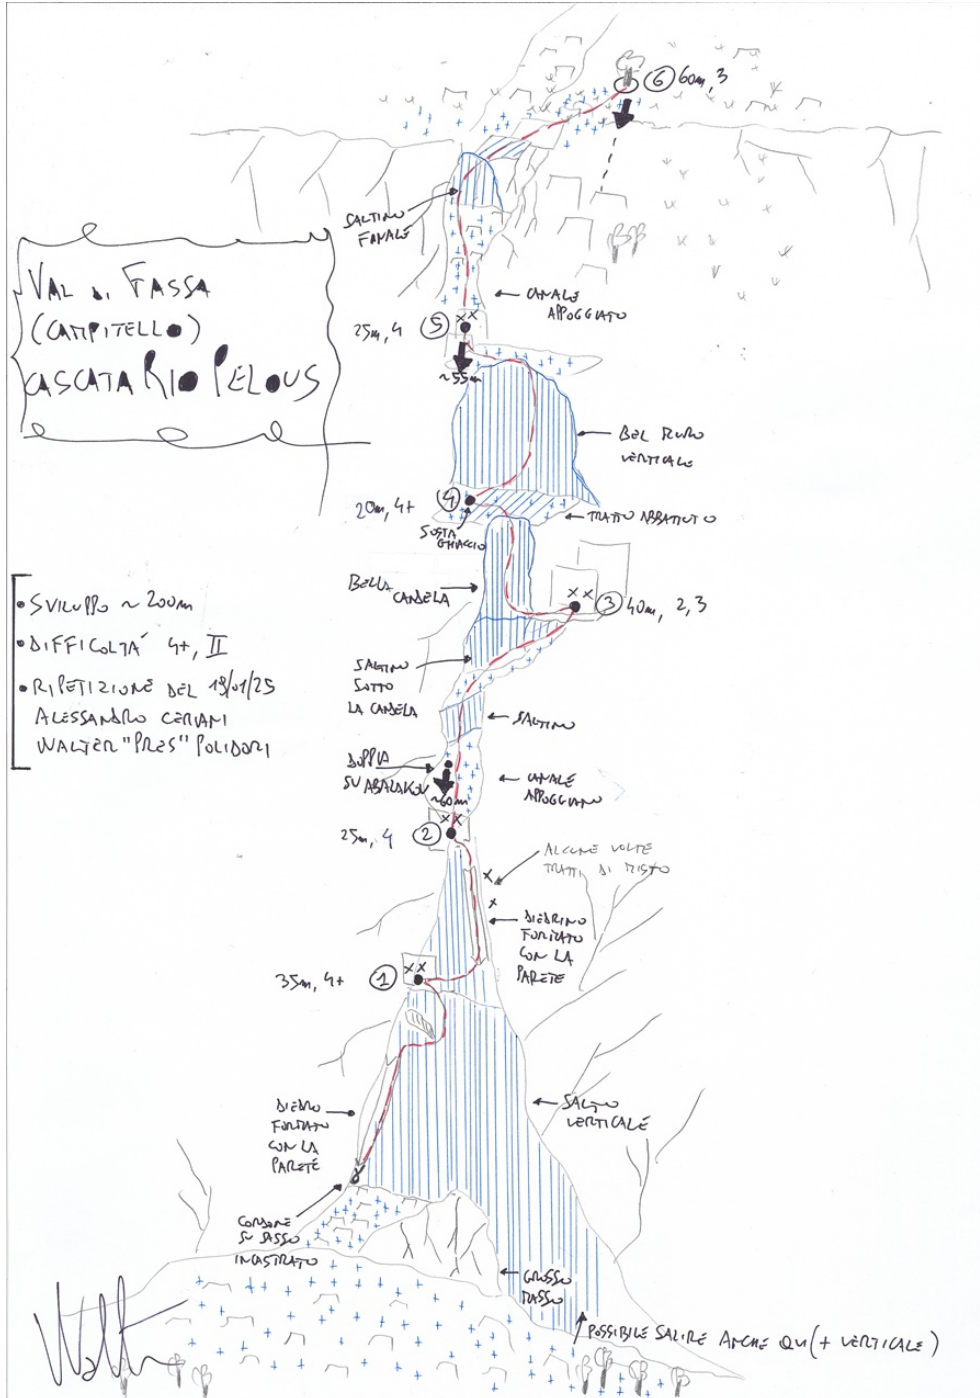 6 60m, 3
SALTINO
FINALE
VAL DI FASSA
(CAMPITELLO)
CASCATA RIO PELOUS
CANALE
APPOGGIATO
25m, 4 5
~55m
BEL MURO
VERTICALE
20m, 4+ 4
SOSTA
GHIACCIO
TRATTO ABBATTUTO
BELLA
CANDELA
3 40m, 2, 3
• SVILUPPO ~ 200m
• DIFFICOLTÀ 4+, II
• RIPETIZIONE DEL 19/01/25
ALESSANDRO CERIANI
WALTER "PRES" POLIDORI
SALTINO
SOTTO
LA CANDELA
SALTINO
DOPPIA
SU ABALAKOV
~60m
CANALE
APPOGGIATO
25m, 4 2
ALCUNE VOLTE
TRATTI DI MISTO
DIEDRINO
FORMATO
CON LA
PARETE
35m, 4+ 1
DIEDRO
FORMATO
CON LA
PARETE
SALTO
VERTICALE
CORDONE
SU SASSO
INCASTRATO
GROSSO
MASSO
POSSIBILE SALIRE ANCHE QUI (+ VERTICALE)